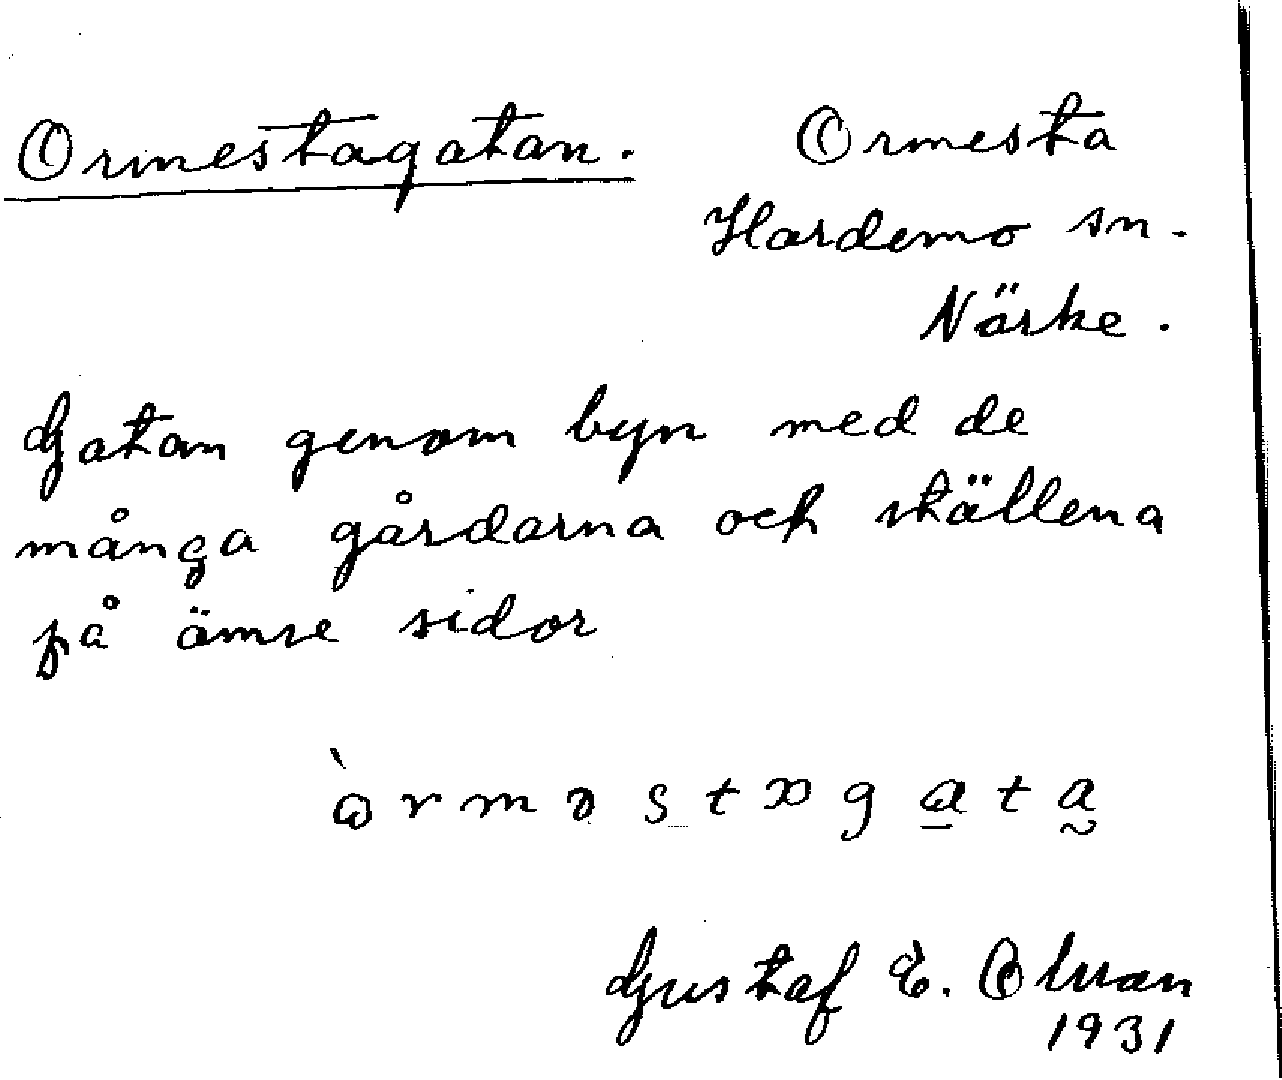 Ormestagatan.
Ormesta
Hardemo sn.
Närke.
Gatan genom byn med de
många gårdarna och ställena
på ömse sidor
Gustaf E. Olsson
1931